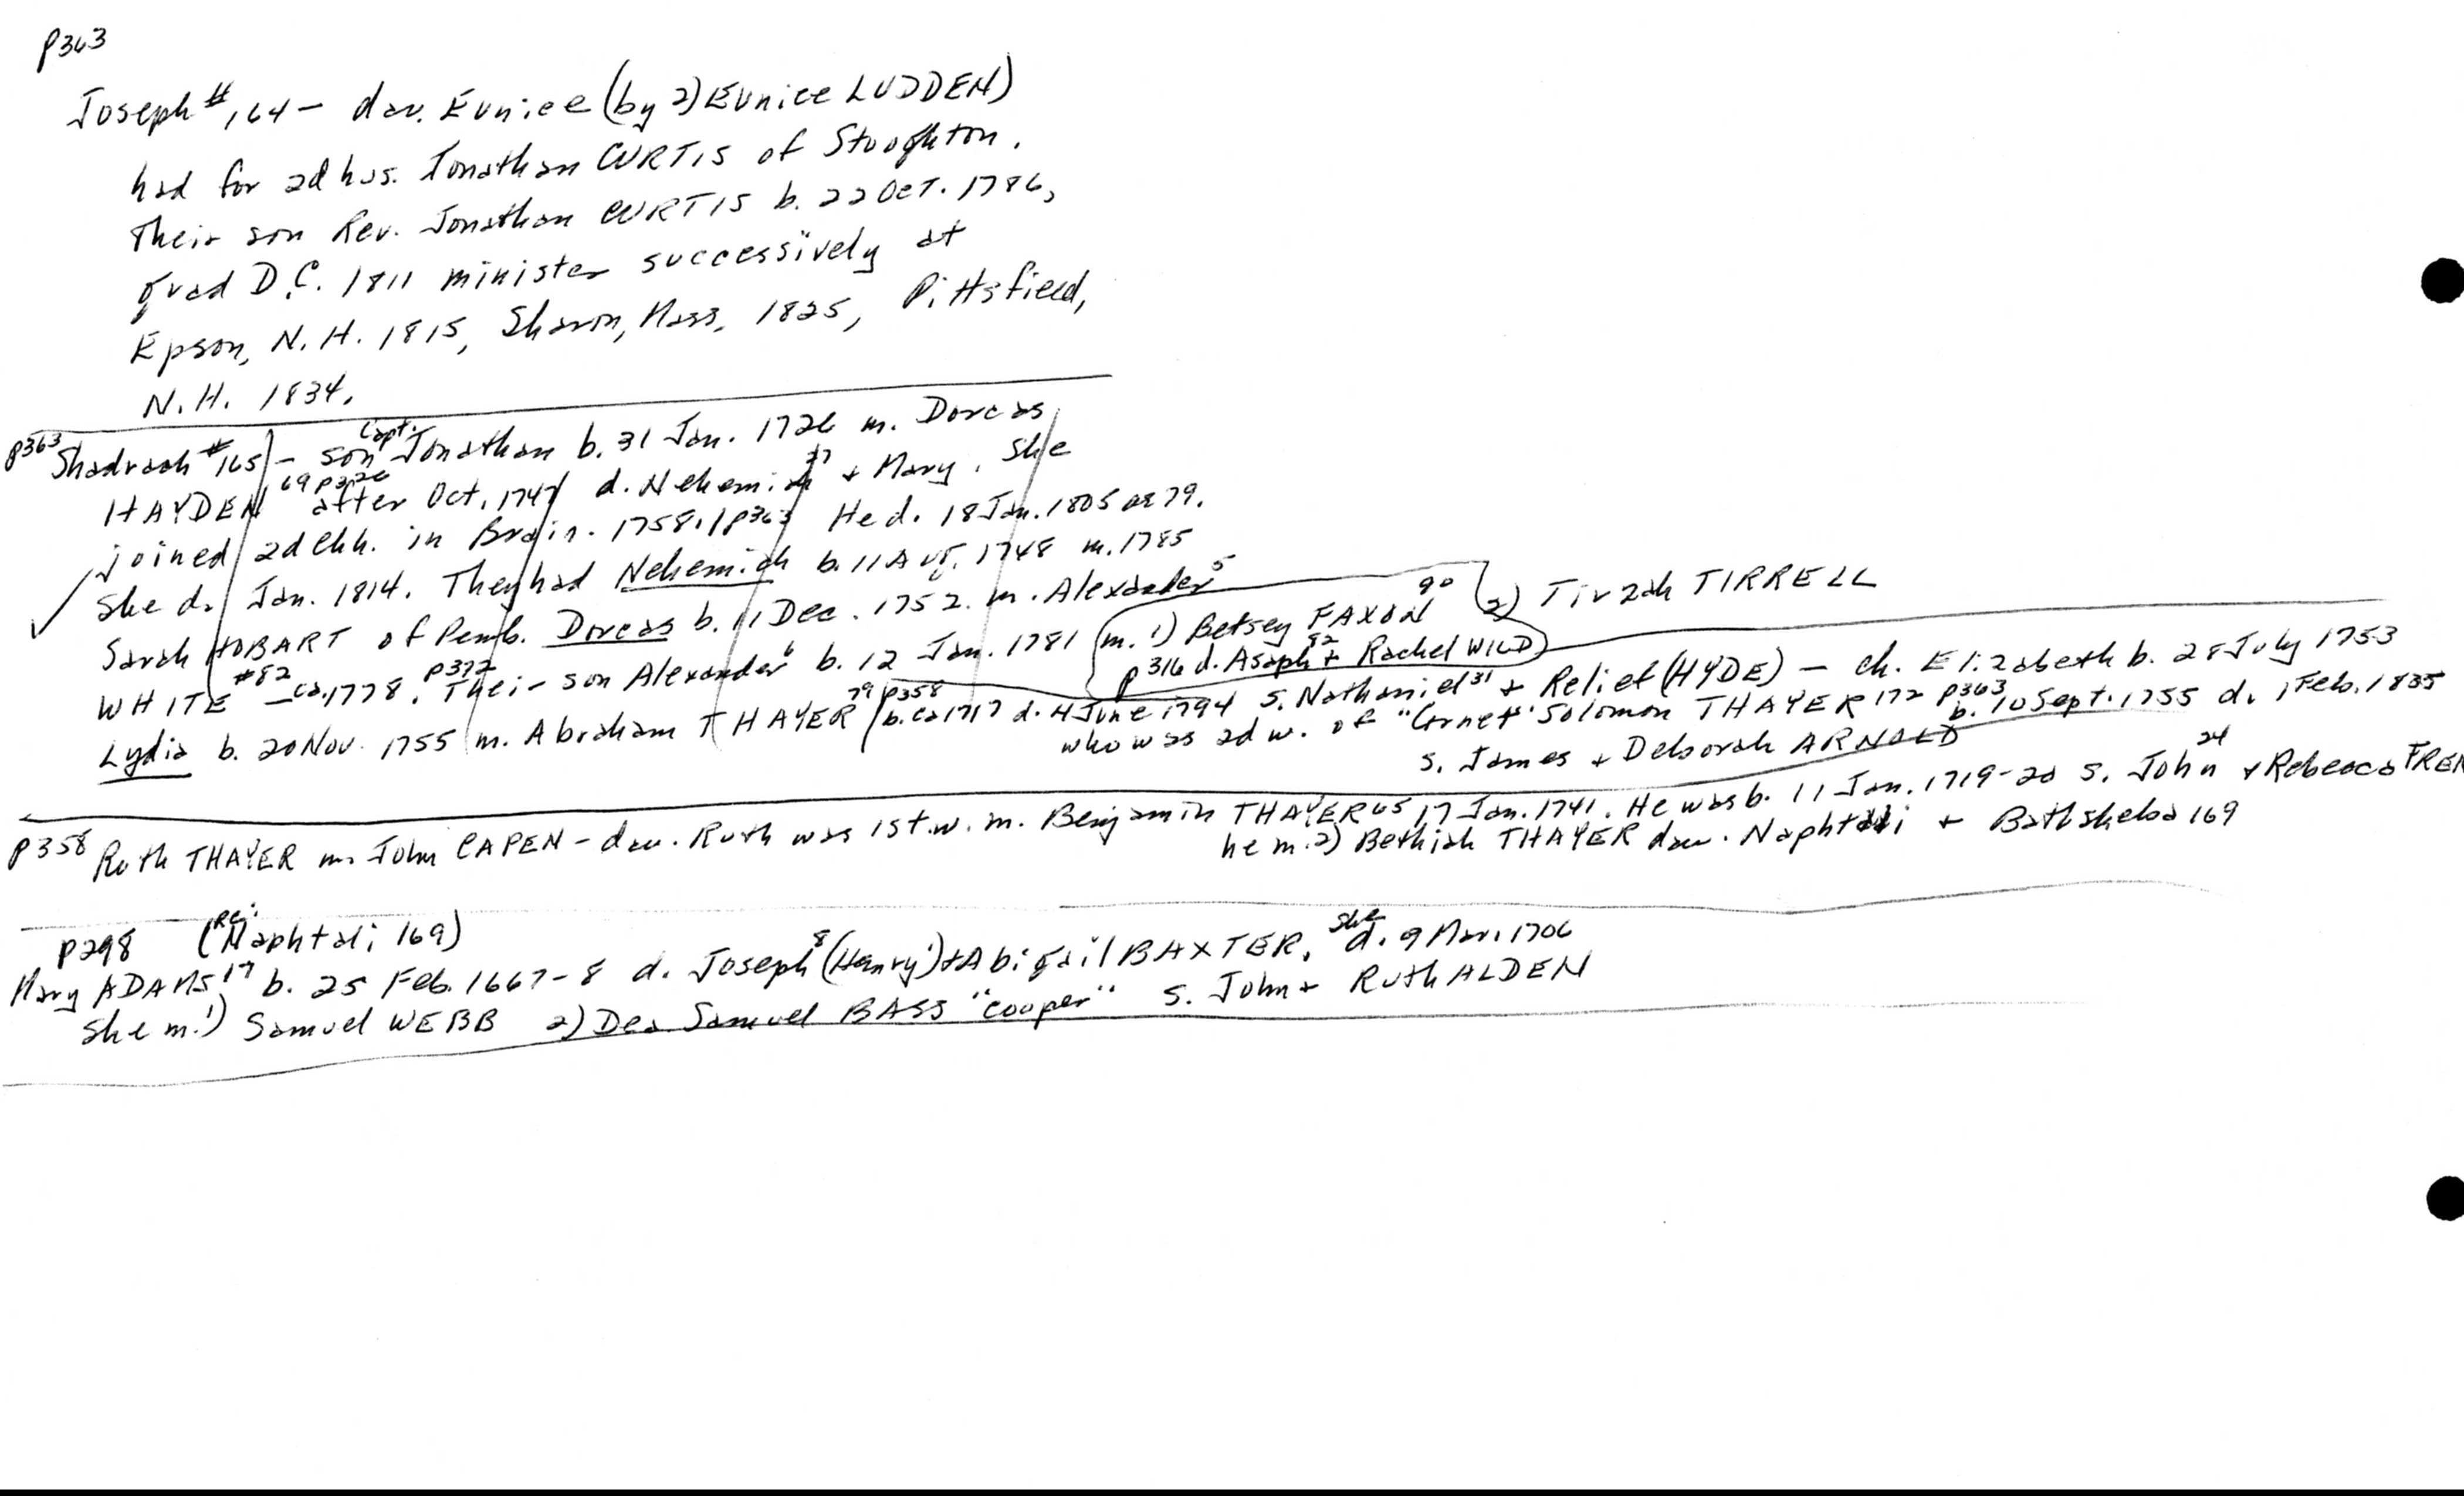 p363
Joseph #164 - dau. Eunice (by 2) Eunice LUDDEN)
had for 2d hus. Jonathan CURTIS of Stoughton.
Their son Rev. Jonathan CURTIS b. 22 Oct. 1786,
grad D.C. 1811 minister successively at
Epson, N.H. 1815, Sharon, Mass. 1825, Pittsfield,
N.H. 1834.
p363 Shadrach #165 - son Capt. Jonathan b. 31 Jan. 1726 m. Dorcas
HAYDEN 69 p326 after Oct. 1747 d. Nehemiah 37 + Mary. She
joined 2d Chh. in Brain. 1758. / p363 He d. 18 Jan. 1805 ae 79.
She d. Jan. 1814. They had Nehemiah b. 11 Aug. 1748 m. 1785
Sarah HOBART of Pemb. Dorcas b. 11 Dec. 1752 m. Alexander 5
WHITE #82 - ca. 1778. p372 Their son Alexander 6 b. 12 Jan. 1781 (m. 1) Betsey FAXON 90 (2) Tirzah TIRRELL
p316 d. Asaph 82 + Rachel WILD
Lydia b. 20 Nov. 1755 m. Abraham THAYER 79 p358 b. ca 1717 d. 4 June 1794 s. Nathaniel 31 + Relief (HYDE) - ch. Elizabeth b. 28 July 1753
who was 2d w. of "Cornet" Solomon THAYER 172 p363 b. 10 Sept. 1755 d. 1 Feb. 1835
s. James + Deborah ARNOLD
p358 Ruth THAYER m. John CAPEN - dau. Ruth was 1st w. m. Benjamin THAYER 65 17 Jan. 1741. He was b. 11 Jan. 1719-20 s. John 24 + Rebecca FREN
he m. 2) Bethiah THAYER dau. Naphtali + Bathsheba 169
p298 (Re: Naphtali 169)
Mary ADAMS 17 b. 25 Feb. 1667-8 d. Joseph 8 (Henry 1) + Abigail BAXTER. She d. 9 Mar. 1706
she m. 1) Samuel WEBB 2) Dea Samuel BASS "cooper" s. John + Ruth ALDEN